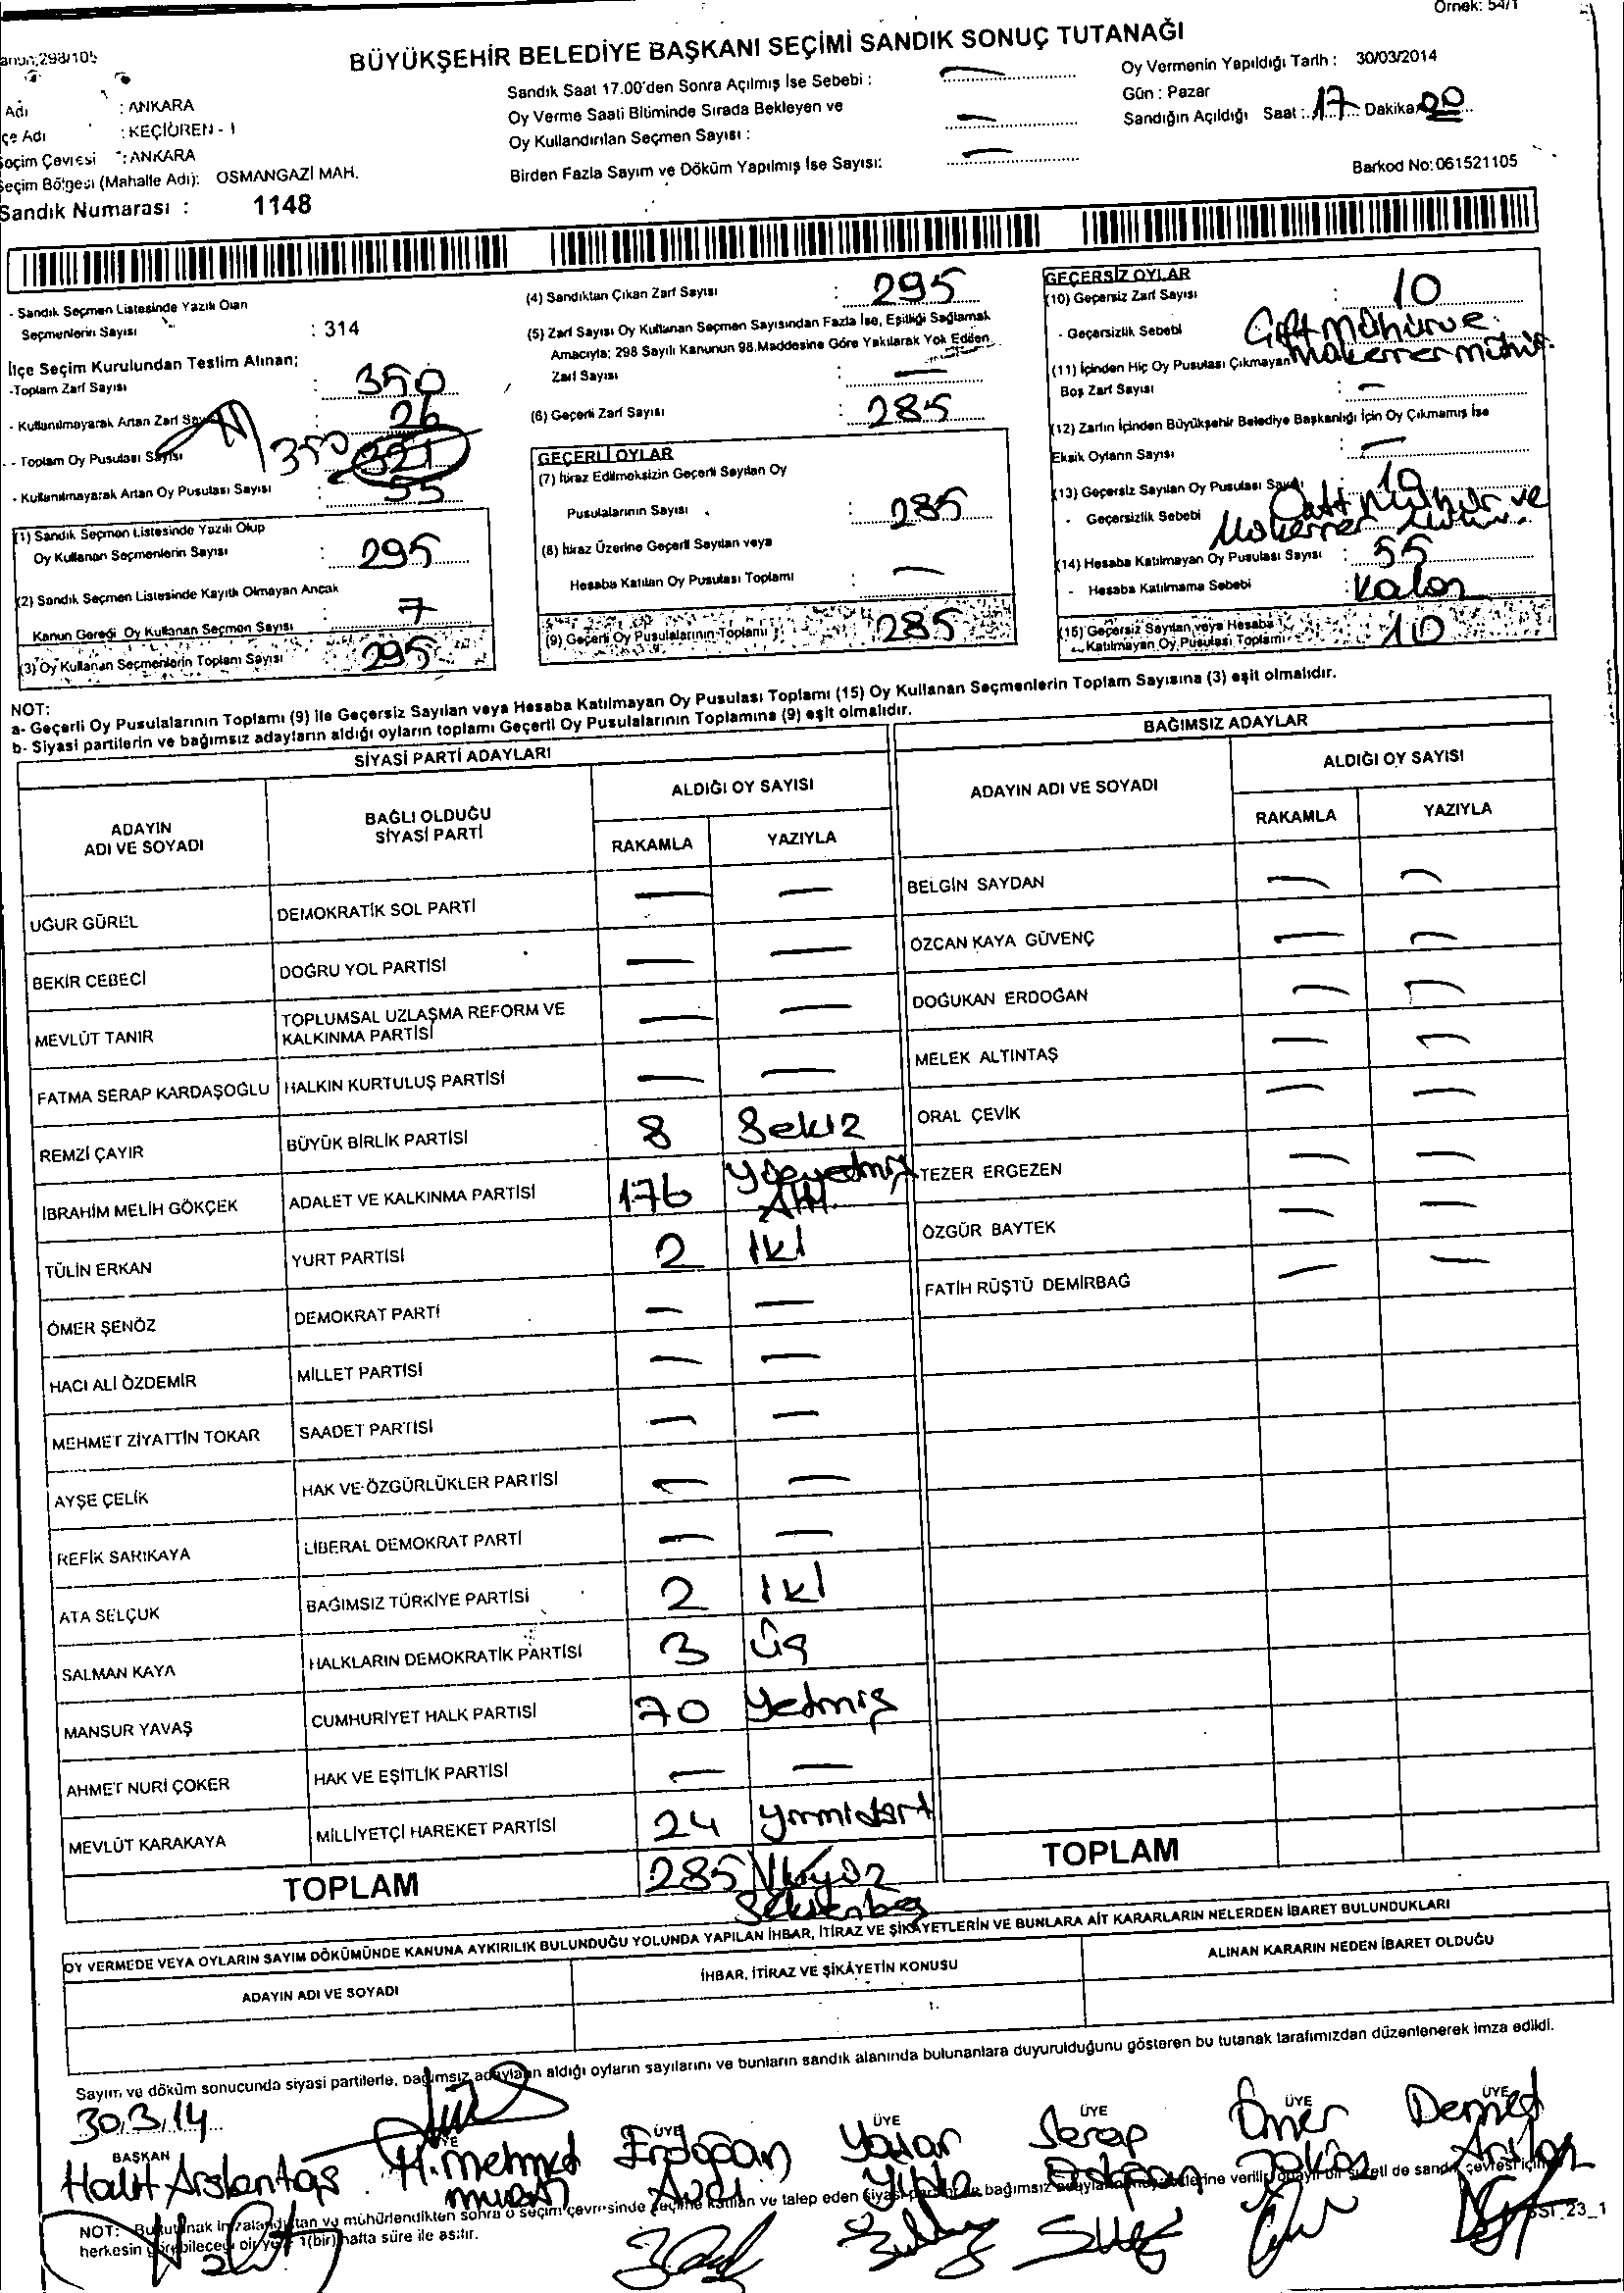 Örnek: 54/1
BÜYÜKŞEHİR BELEDİYE BAŞKANI SEÇİMİ SANDIK SONUÇ TUTANAĞI
298/105
Adı : ANKARA
çe Adı : KEÇİÖREN - 1
Seçim Çevresi : ANKARA
Seçim Bölgesi (Mahalle Adı): OSMANGAZİ MAH.
Sandık Numarası : 1148
Sandık Saat 17.00'den Sonra Açılmış İse Sebebi : —
Oy Verme Saati Bitiminde Sırada Bekleyen ve
Oy Kullandırılan Seçmen Sayısı : —
Birden Fazla Sayım ve Döküm Yapılmış İse Sayısı: —
Oy Vermenin Yapıldığı Tarih : 30/03/2014
Gün : Pazar
Sandığın Açıldığı Saat : 17 Dakika 00
Barkod No: 061521105
- Sandık Seçmen Listesinde Yazılı Olan
Seçmenlerin Sayısı : 314
İlçe Seçim Kurulundan Teslim Alınan;
-Toplam Zarf Sayısı : 350
- Kullanılmayarak Artan Zarf Sayısı : 26
- Toplam Oy Pusulası Sayısı 350 321
- Kullanılmayarak Artan Oy Pusulası Sayısı : 55
(1) Sandık Seçmen Listesinde Yazılı Olup
Oy Kullanan Seçmenlerin Sayısı : 295
(2) Sandık Seçmen Listesinde Kayıtlı Olmayan Ancak
Kanun Gereği Oy Kullanan Seçmen Sayısı : 7
(3) Oy Kullanan Seçmenlerin Toplam Sayısı 295
(4) Sandıktan Çıkan Zarf Sayısı : 295
(5) Zarf Sayısı Oy Kullanan Seçmen Sayısından Fazla İse, Eşitliği Sağlamak
Amacıyla; 298 Sayılı Kanunun 98.Maddesine Göre Yakılarak Yok Edilen
Zarf Sayısı : —
(6) Geçerli Zarf Sayısı : 285
GEÇERLİ OYLAR
(7) İtiraz Edilmeksizin Geçerli Sayılan Oy
Pusulalarının Sayısı : 285
(8) İtiraz Üzerine Geçerli Sayılan veya
Hesaba Katılan Oy Pusulası Toplamı : —
(9) Geçerli Oy Pusulalarının Toplamı : 285
GEÇERSİZ OYLAR
(10) Geçersiz Zarf Sayısı : 10
- Geçersizlik Sebebi Çift mühürve
Mükerrer mühür.
(11) İçinden Hiç Oy Pusulası Çıkmayan
Boş Zarf Sayısı : —
(12) Zarfın İçinden Büyükşehir Belediye Başkanlığı İçin Oy Çıkmamış İse
Eksik Oyların Sayısı : —
(13) Geçersiz Sayılan Oy Pusulası Sayısı : 10
- Geçersizlik Sebebi Çift Mühür ve
Mükerrer Mühür.
(14) Hesaba Katılmayan Oy Pusulası Sayısı : 55
- Hesaba Katılmama Sebebi : Kalan
(15) Geçersiz Sayılan veya Hesaba
Katılmayan Oy Pusulası Toplamı : 10
NOT:
a- Geçerli Oy Pusulalarının Toplamı (9) ile Geçersiz Sayılan veya Hesaba Katılmayan Oy Pusulası Toplamı (15) Oy Kullanan Seçmenlerin Toplam Sayısına (3) eşit olmalıdır.
b- Siyasi partilerin ve bağımsız adayların aldığı oyların toplamı Geçerli Oy Pusulalarının Toplamına (9) eşit olmalıdır.
SİYASİ PARTİ ADAYLARI
ADAYIN ADI VE SOYADI BAĞLI OLDUĞU SİYASİ PARTİ ALDIĞI OY SAYISI
RAKAMLA YAZIYLA
UĞUR GÜREL DEMOKRATİK SOL PARTİ — —
BEKİR CEBECİ DOĞRU YOL PARTİSİ — —
MEVLÜT TANIR TOPLUMSAL UZLAŞMA REFORM VE KALKINMA PARTİSİ — —
FATMA SERAP KARDAŞOĞLU HALKIN KURTULUŞ PARTİSİ — —
REMZİ ÇAYIR BÜYÜK BİRLİK PARTİSİ 8 Sekiz
İBRAHİM MELİH GÖKÇEK ADALET VE KALKINMA PARTİSİ 176 Yüzyetmiş Altı.
TÜLİN ERKAN YURT PARTİSİ 2 İki
ÖMER ŞENÖZ DEMOKRAT PARTİ — —
HACI ALİ ÖZDEMİR MİLLET PARTİSİ — —
MEHMET ZİYATTİN TOKAR SAADET PARTİSİ — —
AYŞE ÇELİK HAK VE ÖZGÜRLÜKLER PARTİSİ — —
REFİK SARIKAYA LİBERAL DEMOKRAT PARTİ — —
ATA SELÇUK BAĞIMSIZ TÜRKİYE PARTİSİ 2 İki
SALMAN KAYA HALKLARIN DEMOKRATİK PARTİSİ 3 Üç
MANSUR YAVAŞ CUMHURİYET HALK PARTİSİ 70 Yetmiş
AHMET NURİ ÇOKER HAK VE EŞİTLİK PARTİSİ — —
MEVLÜT KARAKAYA MİLLİYETÇİ HAREKET PARTİSİ 24 Yirmidört
TOPLAM 285 İkiyüz Seksenbeş
BAĞIMSIZ ADAYLAR
ADAYIN ADI VE SOYADI ALDIĞI OY SAYISI
RAKAMLA YAZIYLA
BELGİN SAYDAN — —
ÖZCAN KAYA GÜVENÇ — —
DOĞUKAN ERDOĞAN — —
MELEK ALTINTAŞ — —
ORAL ÇEVİK — —
TEZER ERGEZEN — —
ÖZGÜR BAYTEK — —
FATİH RÜŞTÜ DEMİRBAĞ — —
TOPLAM
OY VERMEDE VEYA OYLARIN SAYIM DÖKÜMÜNDE KANUNA AYKIRILIK BULUNDUĞU YOLUNDA YAPILAN İHBAR, İTİRAZ VE ŞİKAYETLERİN VE BUNLARA AİT KARARLARIN NELERDEN İBARET BULUNDUKLARI
ADAYIN ADI VE SOYADI İHBAR, İTİRAZ VE ŞİKÂYETİN KONUSU ALINAN KARARIN NEDEN İBARET OLDUĞU
Sayım ve döküm sonucunda siyasi partilerle, bağımsız adayların aldığı oyların sayılarını ve bunların sandık alanında bulunanlara duyurulduğunu gösteren bu tutanak tarafımızdan düzenlenerek imza edildi.
30.3.14
BAŞKAN ÜYE ÜYE ÜYE ÜYE ÜYE ÜYE
Halit Arslantaş H. Mehmet Erdoğan Avcı Yaşar Serap Ömer Demet Arslan
NOT: Bu tutanak imzalandıktan ve mühürlendikten sonra o seçim çevresinde seçime katılan ve talep eden siyasi bağımsız
herkesin görebileceği bir yere 1(bir) hafta süre ile asılır.
23_1